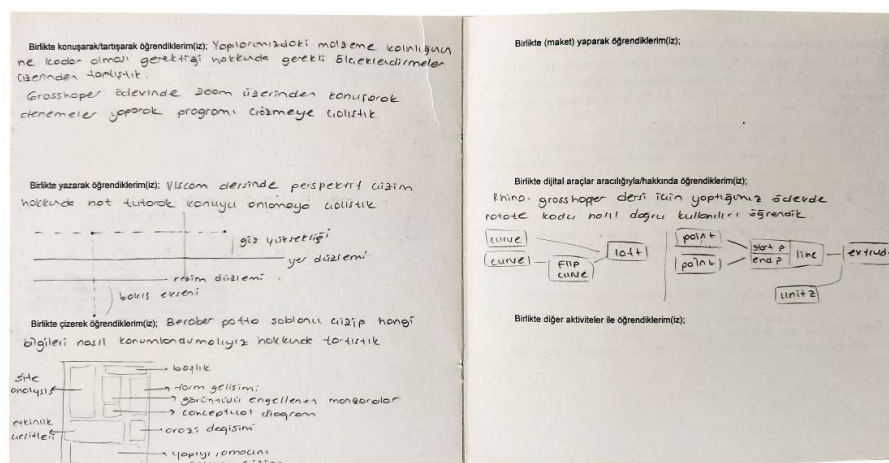 Birlikte konuşarak/tartışarak öğrendiklerim(iz); Yapılarımızdaki malzeme kalınlığının
ne kadar olması gerektiği hakkında gerekli ölçeklendirmeler
üzerinden tartıştık.
Grasshoper ödevinde zoom üzerinden konuşarak
denemeler yaparak programı çözmeye çalıştık.
Birlikte yazarak öğrendiklerim(iz); Viscom dersinde perspektif çizim
hakkında not tutarak konuyu anlamaya çalıştık
göz yüksekliği
yer düzlemi
resim düzlemi
bakış ekseni
Birlikte çizerek öğrendiklerim(iz); Beraber pafta şablonu çizip hangi
bilgileri nasıl konumlandırmalıyız hakkında tartıştık
site
analysis
başlık
form gelişimi
görüntüsü engellenen manzaralar
conceptual diagram
etkinlik
çeşitleri
arazi değişimi
Birlikte (maket) yaparak öğrendiklerim(iz);
Birlikte dijital araçlar aracılığıyla/hakkında öğrendiklerim(iz);
Rhino-grosshoper dersi için yaptığımız ödevde
rotate kodu nasıl doğru kullanılır öğrendik
curve
curve
flip
curve
loft
point
point
start p
end p
line
extrud
unit z
Birlikte diğer aktiviteler ile öğrendiklerim(iz);